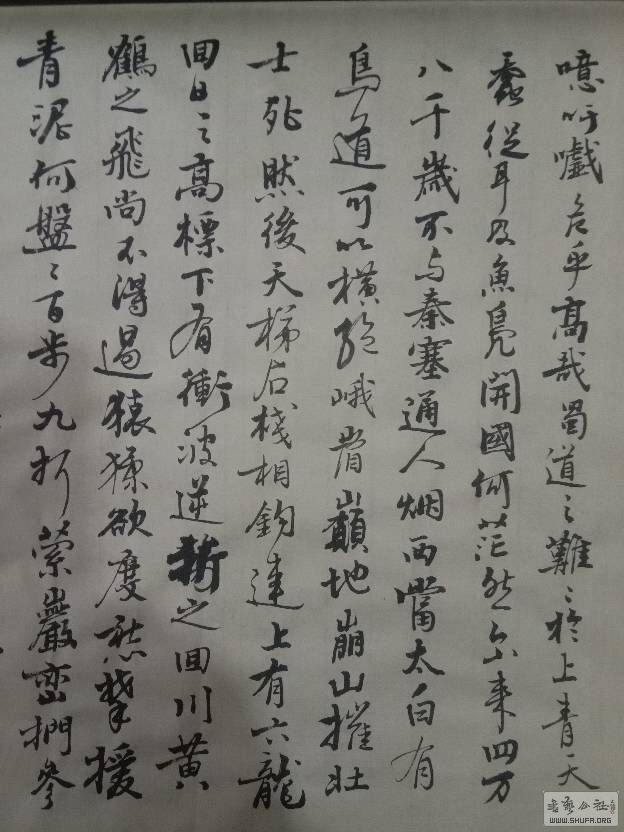 噫吁嚱危乎高哉蜀道之難々於上青天
蠶從耳及魚鳧開國何茫然尔来四万
八千歲不与秦塞通人烟西當太白有
鳥道可以橫絕峨眉巔地崩山摧壯
士死然後天梯石棧相鉤連上有六龍
回日之高標下有衝波逆折之回川黃
鶴之飛尚不得過猿猱欲度愁攀援
青泥何盤々百步九折縈巖巒捫參
WWW.SHUFA.ORG